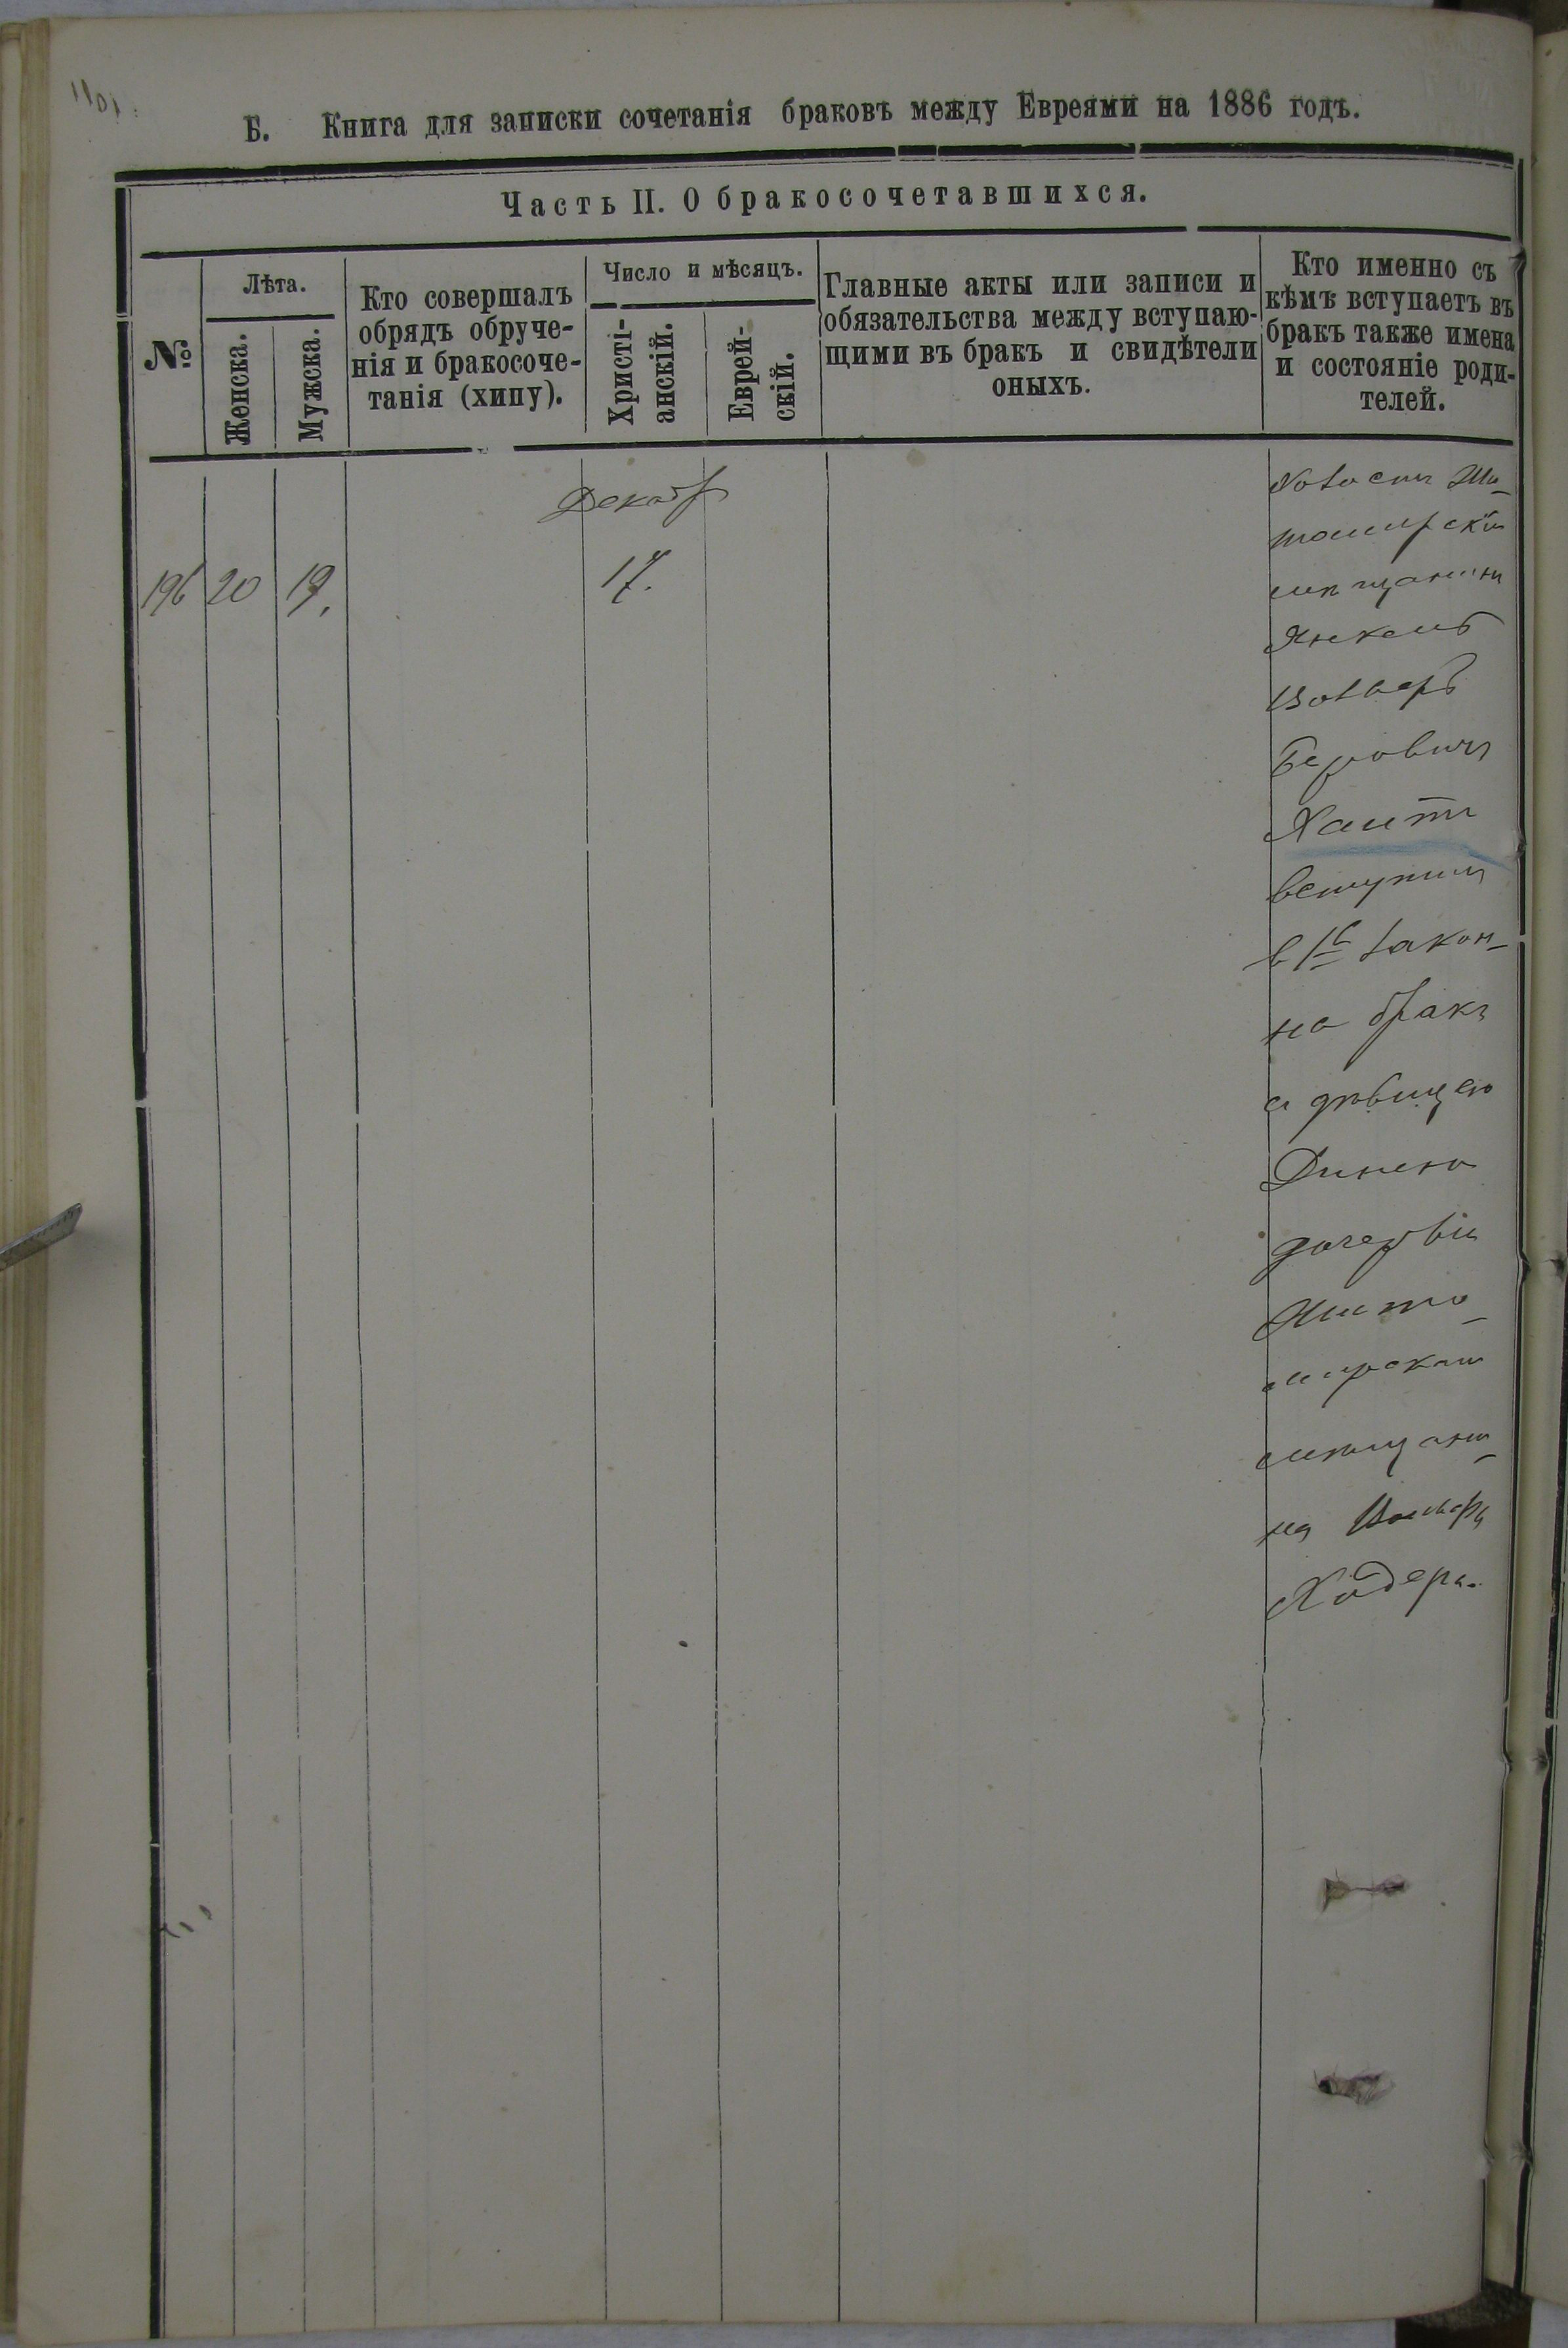 Б. Книга для записки сочетанія браковъ между Евреями на 1886 годъ.
Часть II. О бракосочетавшихся.
№
Лѣта.
Женска.
Мужска.
Кто совершалъ
обрядъ обруче-
нія и бракосоче-
танія (хипу).
Число и мѣсяцъ.
Христі-
анскій.
Еврей-
скій.
Главные акты или записи и
обязательства между вступаю-
щими въ бракъ и свидѣтели
оныхъ.
Кто именно съ
кѣмъ вступаетъ въ
бракъ также имена
и состояніе роди-
телей.
Декабр
196 20 19. 17.
Холостъ Жи-
томирскій
мѣщанинъ
Янкель
Беровичъ
вступилъ
в 1й закон-
но бракъ
съ дѣвицею
Динею
дочерью
Жито-
мирскаго
мѣщани-
на